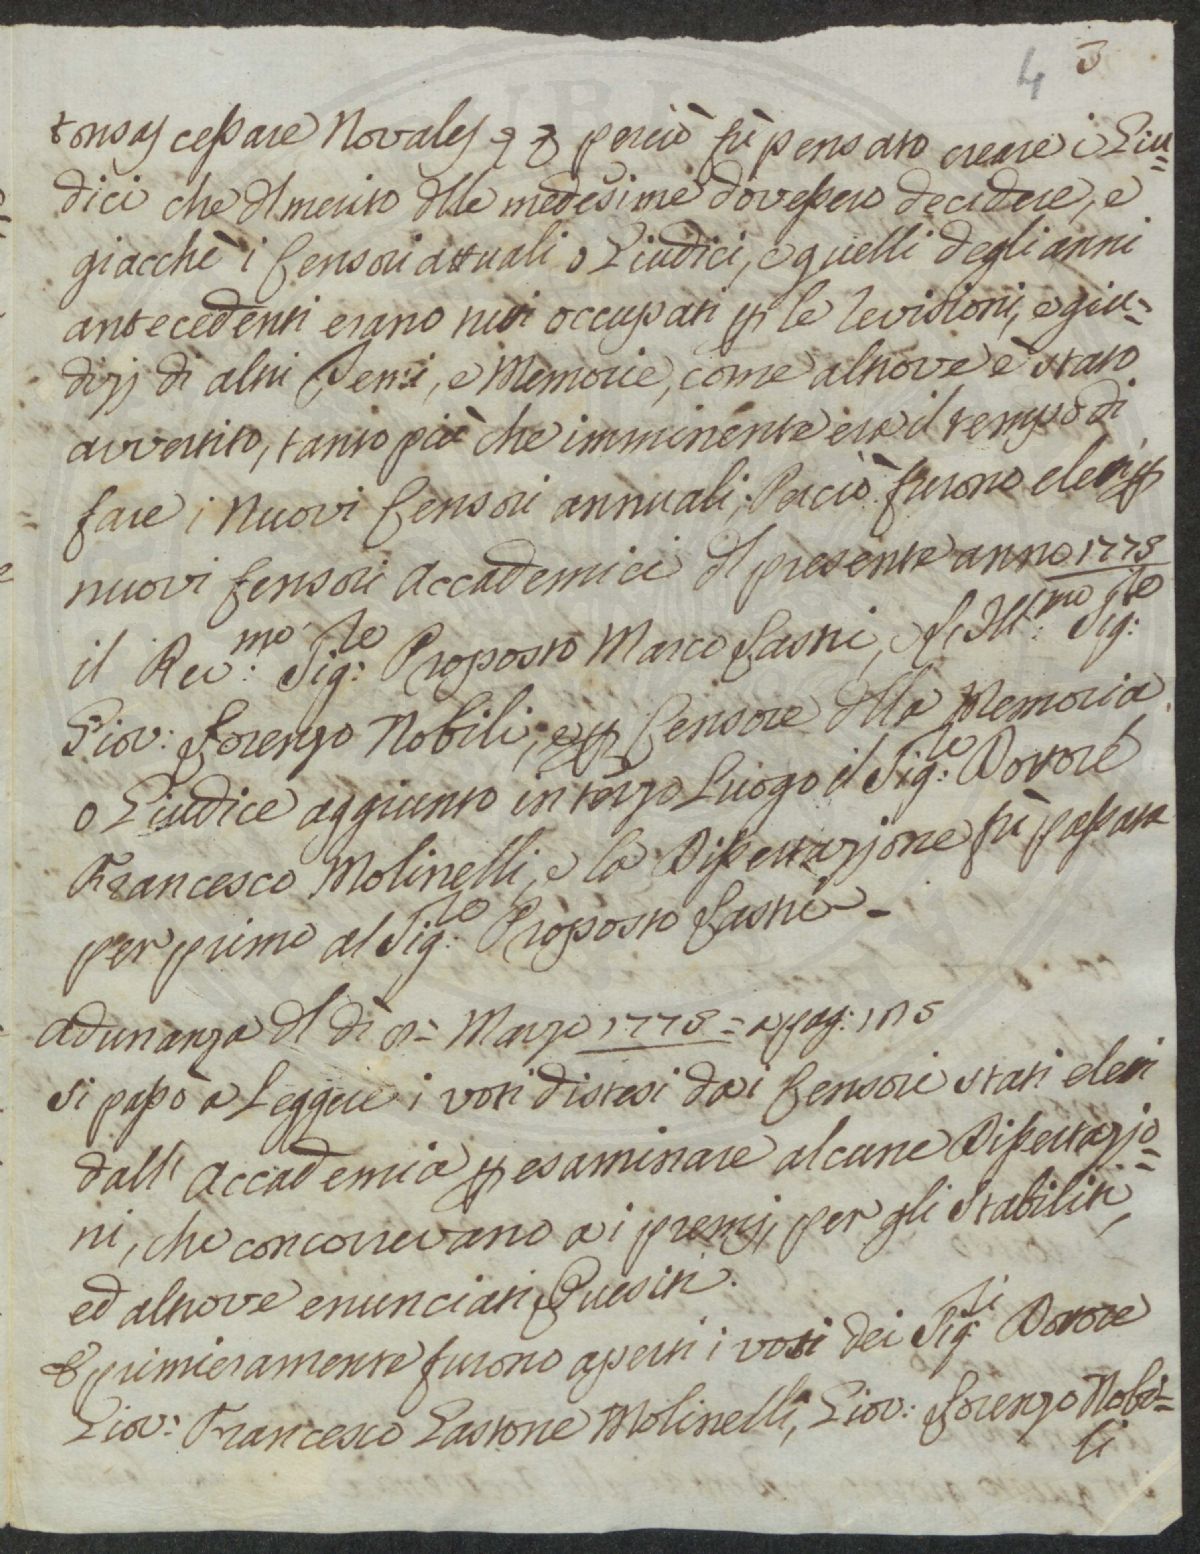 4 3
tonsas cessare Novales perciò fù pensato creare i Giu=
dici che dl merito dlle medesime dovessero decidere, e
giacchè i Censori attuali o Giudici, e quelli degli anni
antecedenti erano tutti occupati p le revisioni, e giu=
dizj di altri Temi, e Memorie, come altrove è stato
avvertito, tanto più che imminente era il tempo di
fare i nuovi Censori annuali; Perciò furono eletti p
nuovi Censori Accademici dl presente anno 1778
il Rev:mo Sig:re Proposto Marco Lastri, e l'Ill:mo Sig:re
Giov: Lorenzo Nobili, e p Censore dlla Memoria
o Giudice aggiunto in terzo Luogo il Sig:re Dottore
Francesco Molinelli, e la Dissertazione fù passata
per primo al Sig:re Proposto Lastri -
Adunanza dl dì 8= Marzo 1778 = a pag: 185
Si passò a Leggere i voti distesi dai Censori stati eletti
dall' Accademia p esaminare alcune Dissertazio=
ni, che concorrevano ai premj, per gli Stabiliti,
ed altrove enunciati Quesiti.
E primieramente furono aperti i voti dei Sig:ri Dottore
Giov: Francesco Gastone Molinelli, Giov: Lorenzo Nobi=
li